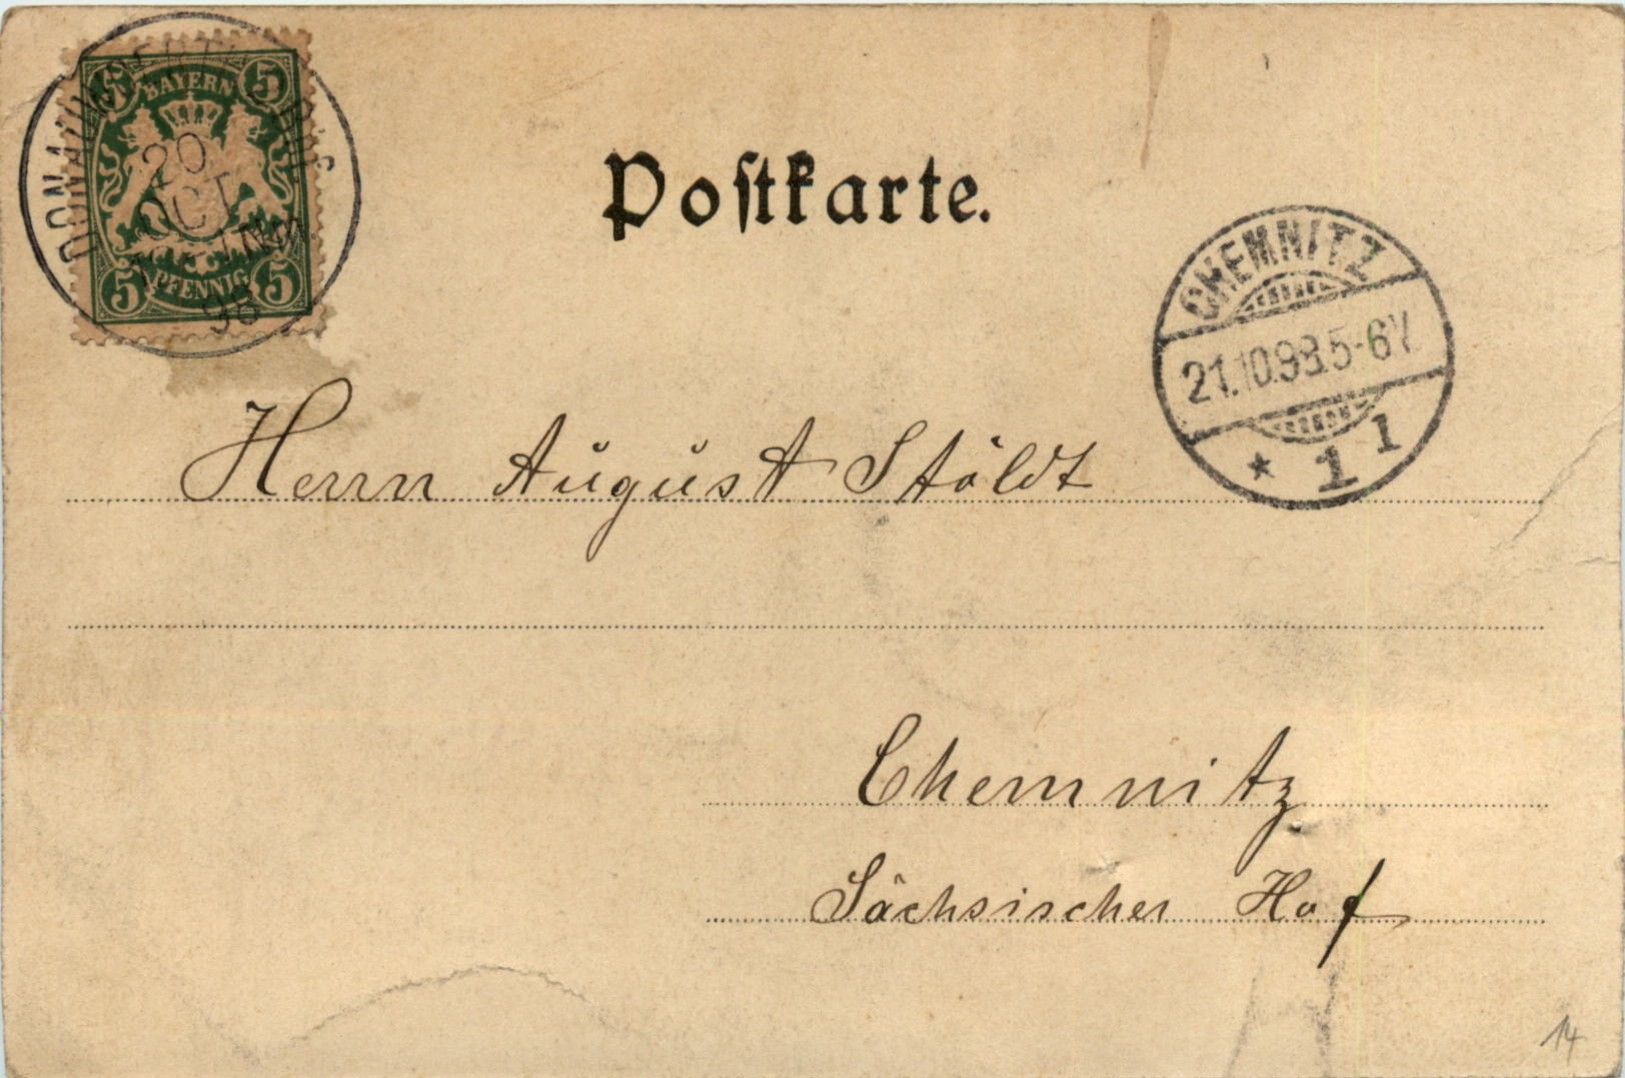 BAYERN
5 5
20
OCT
98
PFENNIG
5 5
Postkarte.
CHEMNITZ
21.10.98.5-6V.
* 1 1
Herrn August Stöldt
Chemnitz
Sächsischer Hof
14